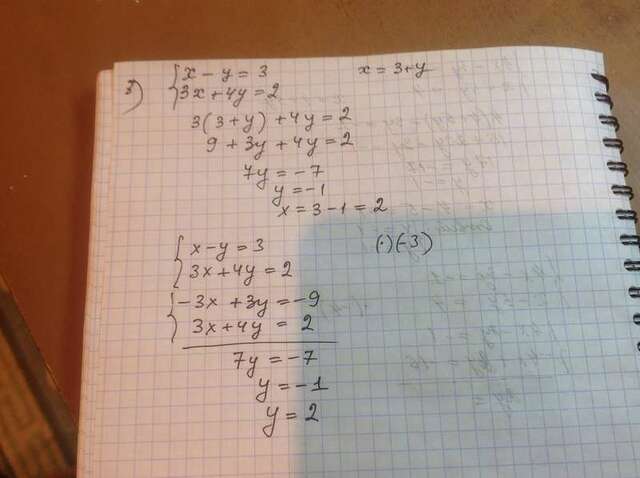 3) { x - y = 3 x = 3+y
3x + 4y = 2
3(3+y) + 4y = 2
9 + 3y + 4y = 2
7y = -7
y = -1
x = 3 - 1 = 2
{ x - y = 3 (·)(-3)
3x + 4y = 2
{ -3x + 3y = -9
3x + 4y = 2
7y = -7
y = -1
y = 2